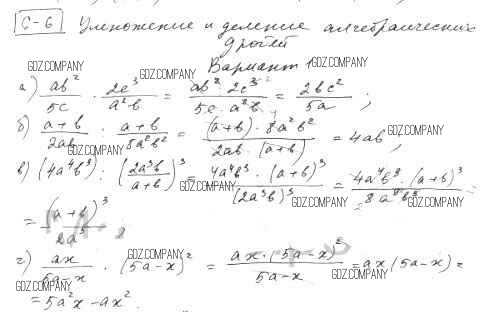 С-6 Умножение и деление алгебраических
дробей
Вариант 1
а) ab²/5c · 2c³/a²b = ab²·2c³/5c·a²b = 2bc²/5a ;
б) a+b/2ab : a+b/8a²b² = (a+b)·8a²b²/2ab·(a+b) = 4ab,
в) (4a⁴b³) : (2a³b/a+b)³ = 4a⁴b³·(a+b)³/(2a³b)³ = 4a⁴b³·(a+b)³/8a⁹b³ =
= (a+b)³/2a⁵
г) ax/5a-x · (5a-x)² = ax·(5a-x)²/5a-x = ax(5a-x) =
= 5a²x - ax².
GDZ.COMPANY
GDZ.COMPANY
GDZ.COMPANY
GDZ.COMPANY
GDZ.COMPANY
GDZ.COMPANY
GDZ.COMPANY
GDZ.COMPANY
GDZ.COMPANY
GDZ.COMPANY
GDZ.COMPANY
GDZ.COMPANY
GDZ.COMPANY
GDZ.COMPANY